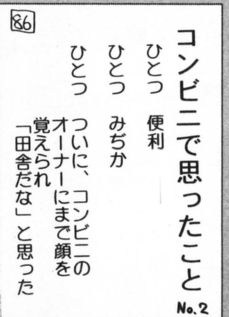 86
コンビニで思ったこと
No.2
ひとつ 便利
ひとつ みぢか
ひとつ ついに、コンビニの
オーナーにまで顔を
覚えられ
「田舎だな」と思った